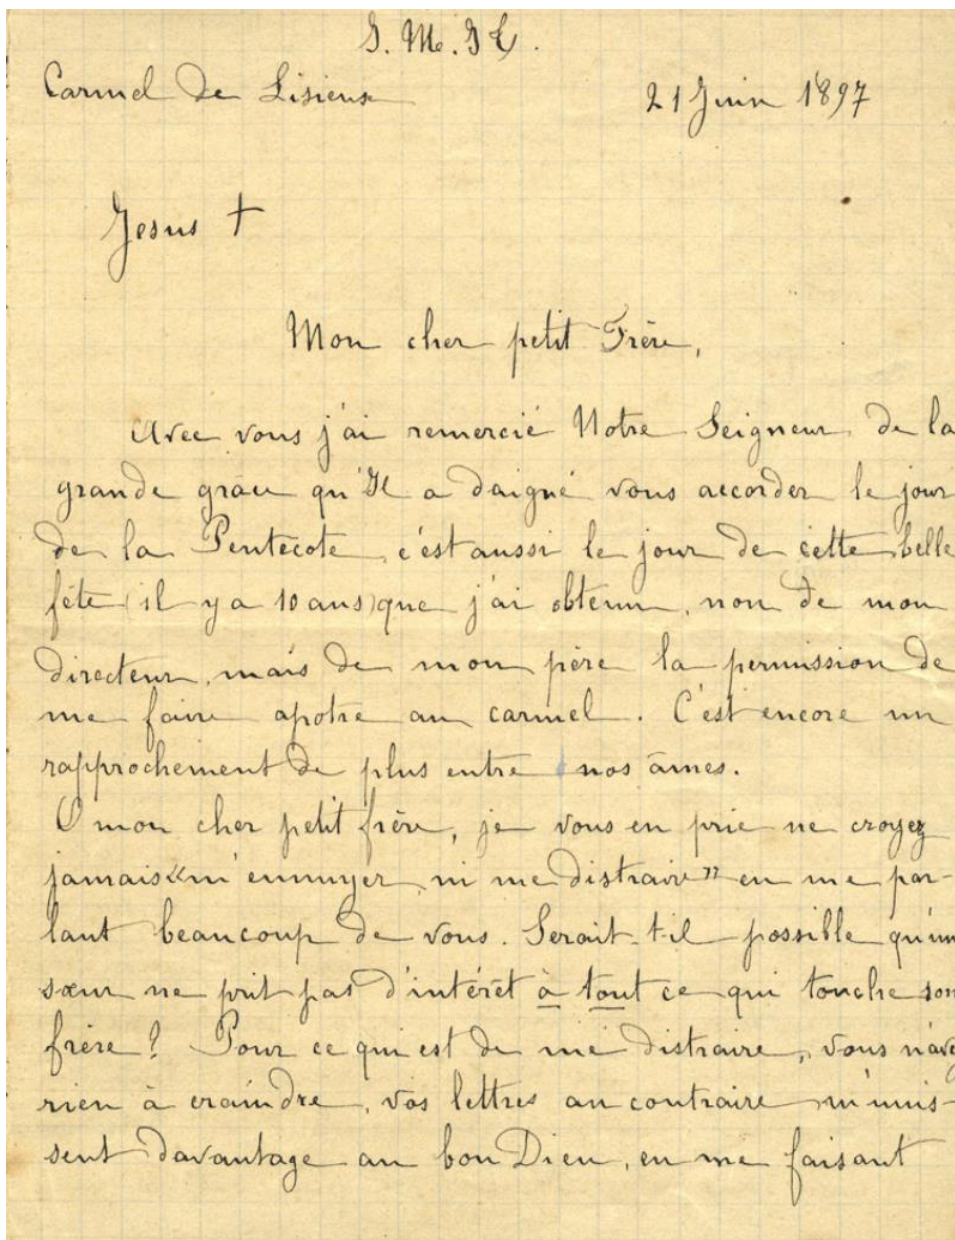 J. M. J T.
Carmel de Lisieux 21 Juin 1897
Jesus †
Mon cher petit Frère,
Avec vous j'ai remercié Notre Seigneur de la
grande grâce qu'Il a daigné vous accorder le jour
de la Pentecôte, c'est aussi le jour de cette belle
fête (il y a 10 ans) que j'ai obtenu, non de mon
directeur, mais de mon père la permission de
me faire apôtre au carmel. C'est encore un
rapprochement de plus entre nos âmes.
O mon cher petit frère, je vous en prie ne croyez
jamais «m'ennuyer, ni me distraire" en me par-
lant beaucoup de vous. Serait-t-il possible qu'une
sœur ne prît pas d'intérêt à tout ce qui touche son
frère? Pour ce qui est de me distraire, vous n'avez
rien à craindre, vos lettres au contraire m'unis-
sent davantage au bon Dieu, en me faisant